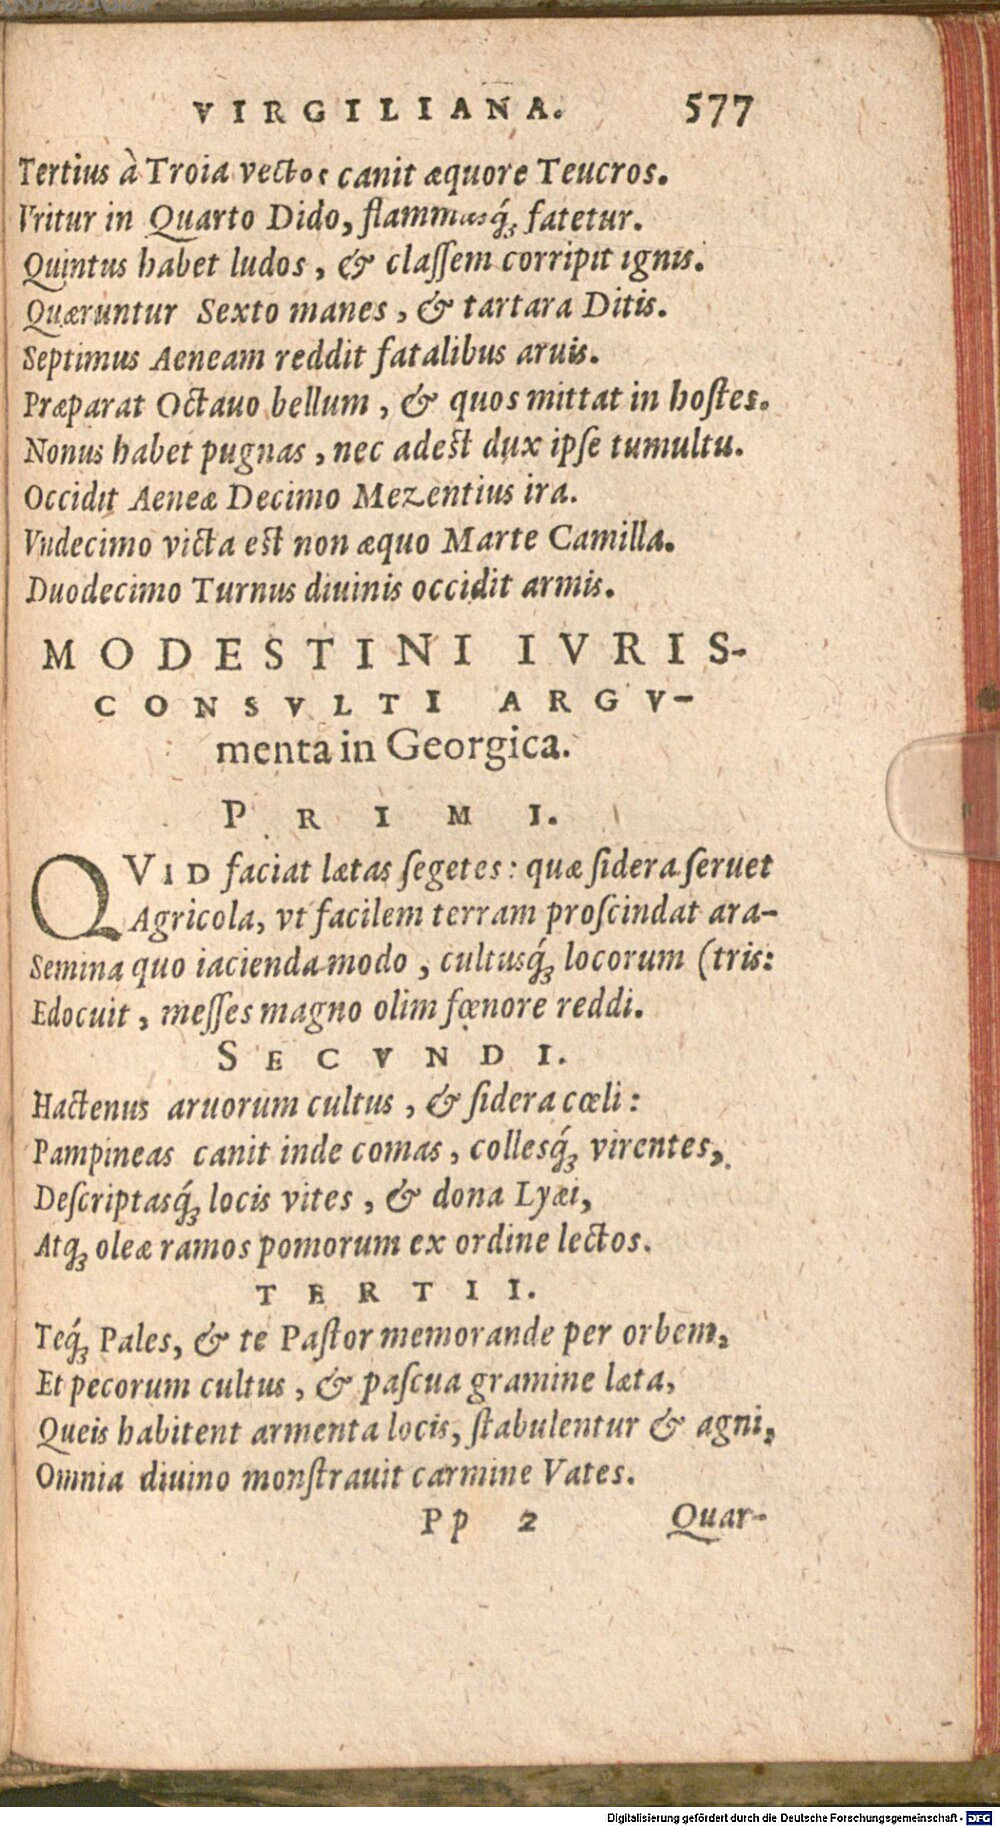 VIRGILIANA. 577
Tertius à Troia vectos canit æquore Teucros.
Vritur in Quarto Dido, flammasq́; fatetur.
Quintus habet ludos, & claſſem corripit ignis.
Quæruntur Sexto manes, & tartara Ditis.
Septimus Aeneam reddit fatalibus aruis.
Præparat Octauo bellum, & quos mittat in hoſtes.
Nonus habet pugnas, nec adeſt dux ipſe tumultu.
Occidit Aeneæ Decimo Mezentius ira.
Vndecimo victa eſt non æquo Marte Camilla.
Duodecimo Turnus diuinis occidit armis.
MODESTINI IVRIS-
CONSVLTI ARGV-
menta in Georgica.
PRIMI.
QVID faciat lætas ſegetes: quæ ſidera ſeruet
Agricola, vt facilem terram proſcindat ara-
Semina quo iacienda modo, cultusq́; locorum (tris:
Edocuit, meſſes magno olim fœnore reddi.
SECVNDI.
Hactenus aruorum cultus, & ſidera cœli:
Pampineas canit inde comas, collesq́; virentes,
Deſcriptasq́; locis vites, & dona Lyæi,
Atq; oleæ ramos pomorum ex ordine lectos.
TERTII.
Teq́; Pales, & te Paſtor memorande per orbem,
Et pecorum cultus, & paſcua gramine læta,
Queis habitent armenta locis, ſtabulentur & agni,
Omnia diuino monſtrauit carmine Vates.
Pp 2 Quar-
Digitalisierung gefördert durch die Deutsche Forschungsgemeinschaft - DFG